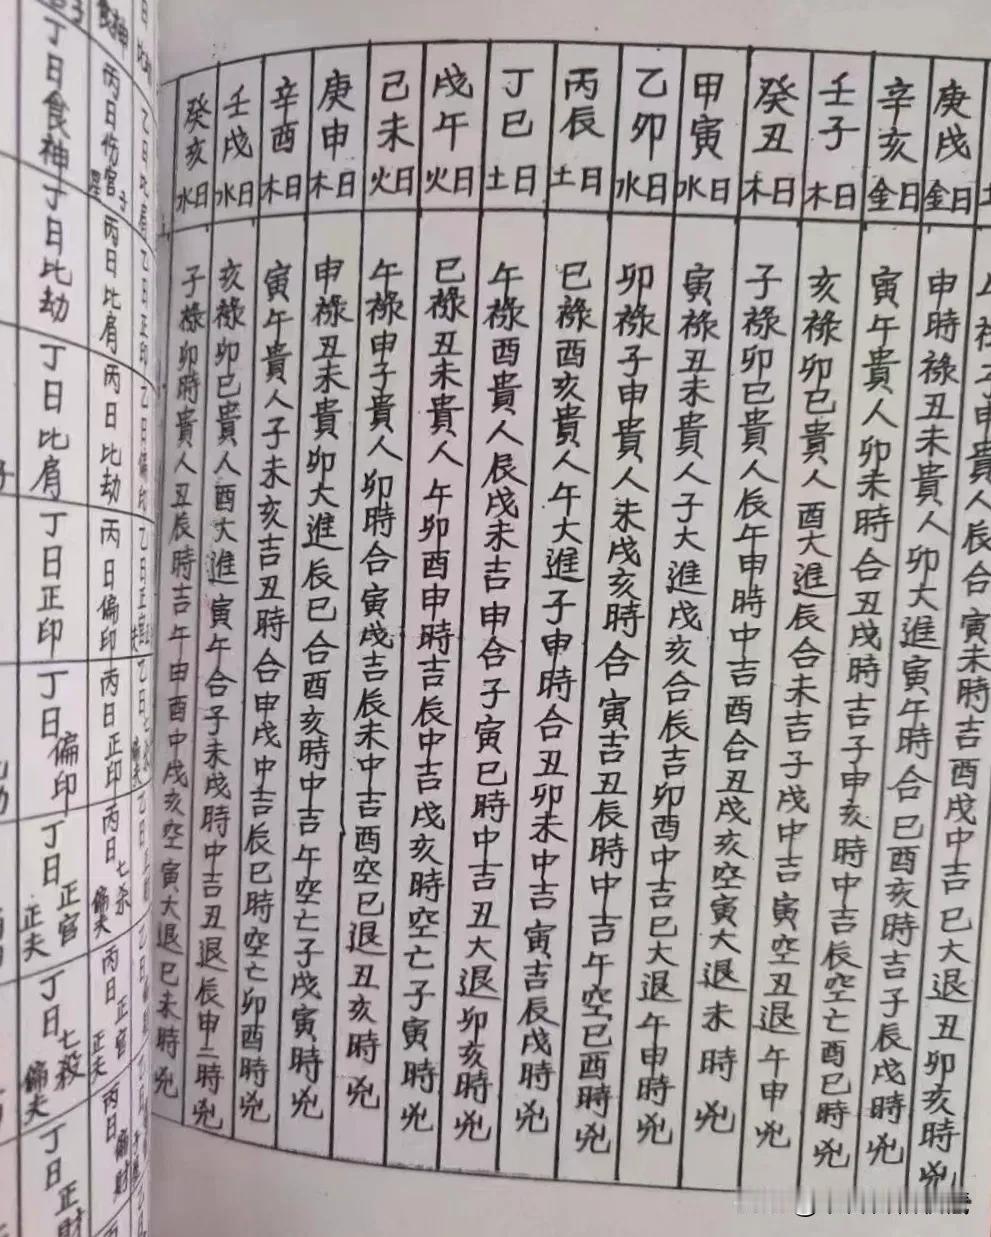 土
申貴人辰合寅未時吉酉戌中吉巳大退丑卯亥時兇
庚戌
金日
申時祿丑未貴人卯大進寅午時合巳酉亥時吉子辰戌時兇
辛亥
金日
寅午貴人卯未時合丑戌時吉子申亥時中吉辰空亡酉巳時兇
壬子
木日
亥祿卯巳貴人酉大進辰合未吉子戌中吉寅空丑退午申兇
癸丑
木日
子祿卯巳貴人辰午申時中吉酉合丑戌亥空寅大退未時兇
甲寅
水日
寅祿丑未貴人子大進戌亥合辰吉卯酉中吉巳大退午申時兇
乙卯
水日
卯祿子申貴人未戌亥時合寅吉丑辰時中吉午空巳酉時兇
丙辰
土日
巳祿酉亥貴人午大進子申時合丑卯未中吉寅吉辰戌時兇
丁巳
土日
午祿酉貴人辰戌未吉申合子寅巳時中吉丑大退卯亥時兇
戊午
火日
巳祿丑未貴人午卯酉申時吉辰中吉戌亥時空亡子寅時兇
己未
火日
午祿申子貴人卯時合寅戌吉辰未中吉酉空巳退丑亥時兇
庚申
木日
申祿丑未貴卯大進辰巳合酉亥時中吉午空亡子戌寅時兇
辛酉
木日
寅午貴人子未亥吉丑時合申戌中吉辰巳時空亡卯酉時兇
壬戌
水日
亥祿卯巳貴人酉大進寅午合子未戌時中吉丑退辰申二時兇
癸亥
水日
子祿卯時貴人丑辰時吉午申酉中戌亥空寅大退巳未時兇
乙日比肩
乙日正印
乙日偏印
乙日正官
乙日七
食神
丙日伤官
丙日比肩
丙日比劫
丙日偏印
丙日正印
丙日七杀
偏夫
丙日正官
正夫
丙日偏財
丁日食神
丁日比劫
丁日比肩
丁日正印
丁日偏印
丁日正官
正夫
丁日七殺
偏夫
丁日正財